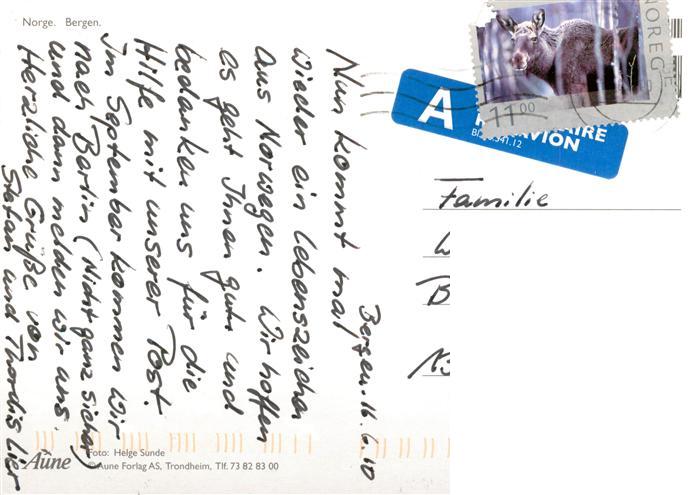 Norge. Bergen.
Bergen. 16.6.10
Nun kommt mal
wieder ein Lebenszeichen
aus Norwegen. Wir hoffen
es geht Ihnen gut und
bedanken uns für die
Hilfe mit unserer Post.
Im September kommen wir
nach Berlin (Nicht ganz sicher)
und dann melden wir uns.
Herzliche Grüße von
Stefan und Thordis Lier
NOREGE
11 00
A
PAR AVION
Familie
Aune
Foto: Helge Sunde
© Aune Forlag AS, Trondheim, Tlf. 73 82 83 00